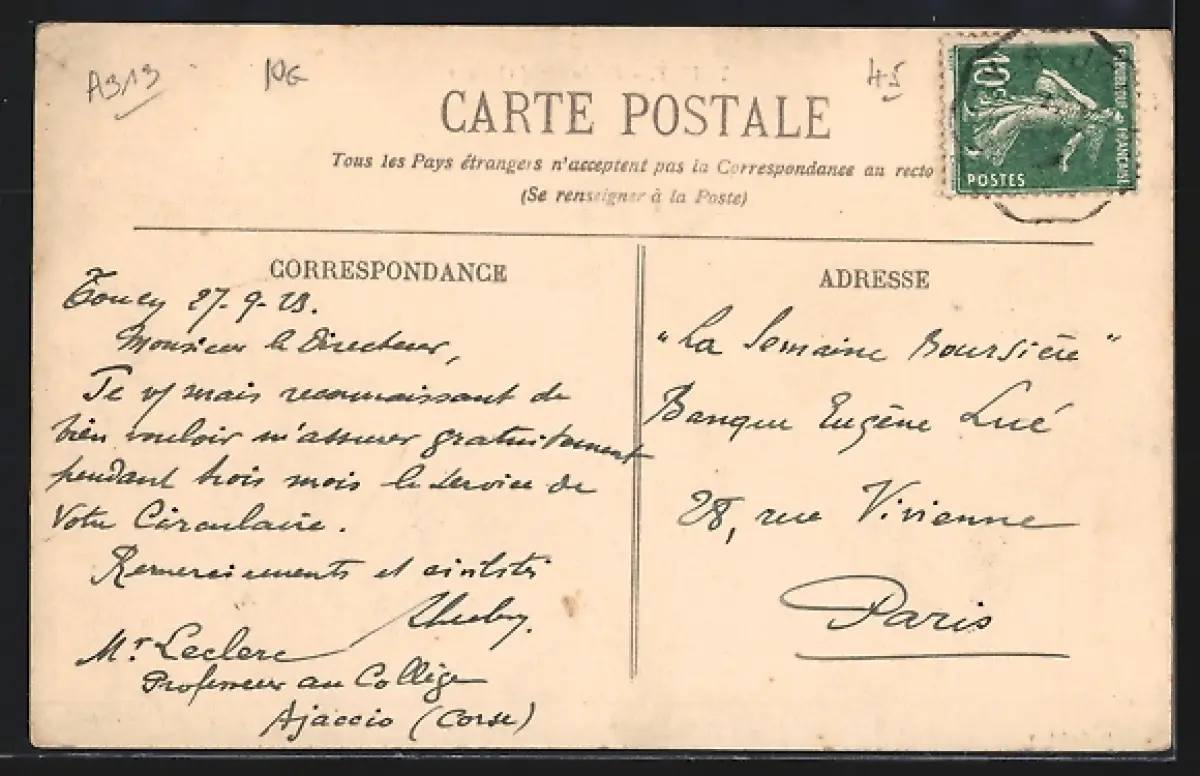 A313
45
CARTE POSTALE
Tous les Pays étrangers n'acceptent pas la Correspondance au recto
(Se renseigner à la Poste)
10c
REPUBLIQUE FRANÇAISE
POSTES
CORRESPONDANCE
Toucy 27-9-23.
Monsieur le Directeur,
Je vs serais reconnaissant de
bien vouloir m'assurer gratuitement
pendant trois mois le service de
Votre Circulaire.
Remerciements et civilités
Mr. Leclerc
Professeur au Collège
Ajaccio (Corse)
ADRESSE
"La Semaine Boursière"
Banque Eugène Lué
28, rue Vivienne
Paris